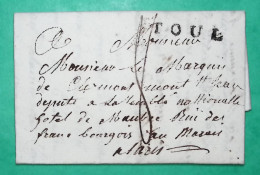 TOUL
A Monsieur
Monsieur Le Marquis
de Clermont mont St Jean
deputé a Lassemblé nationalle
hotel de Rue des
franc bourgois au Marais
a Paris